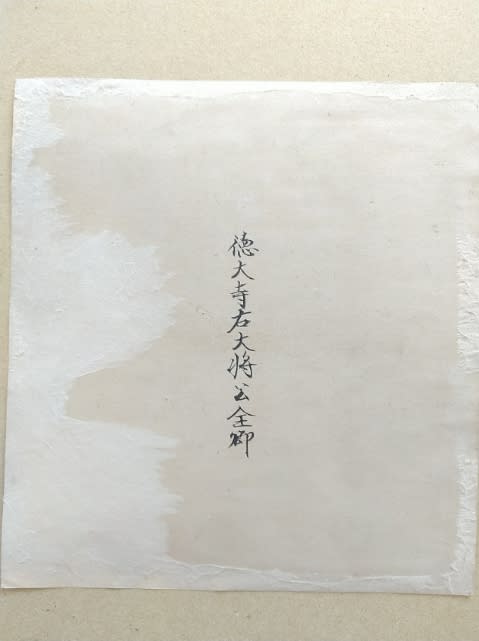 徳大寺右大将公全卿